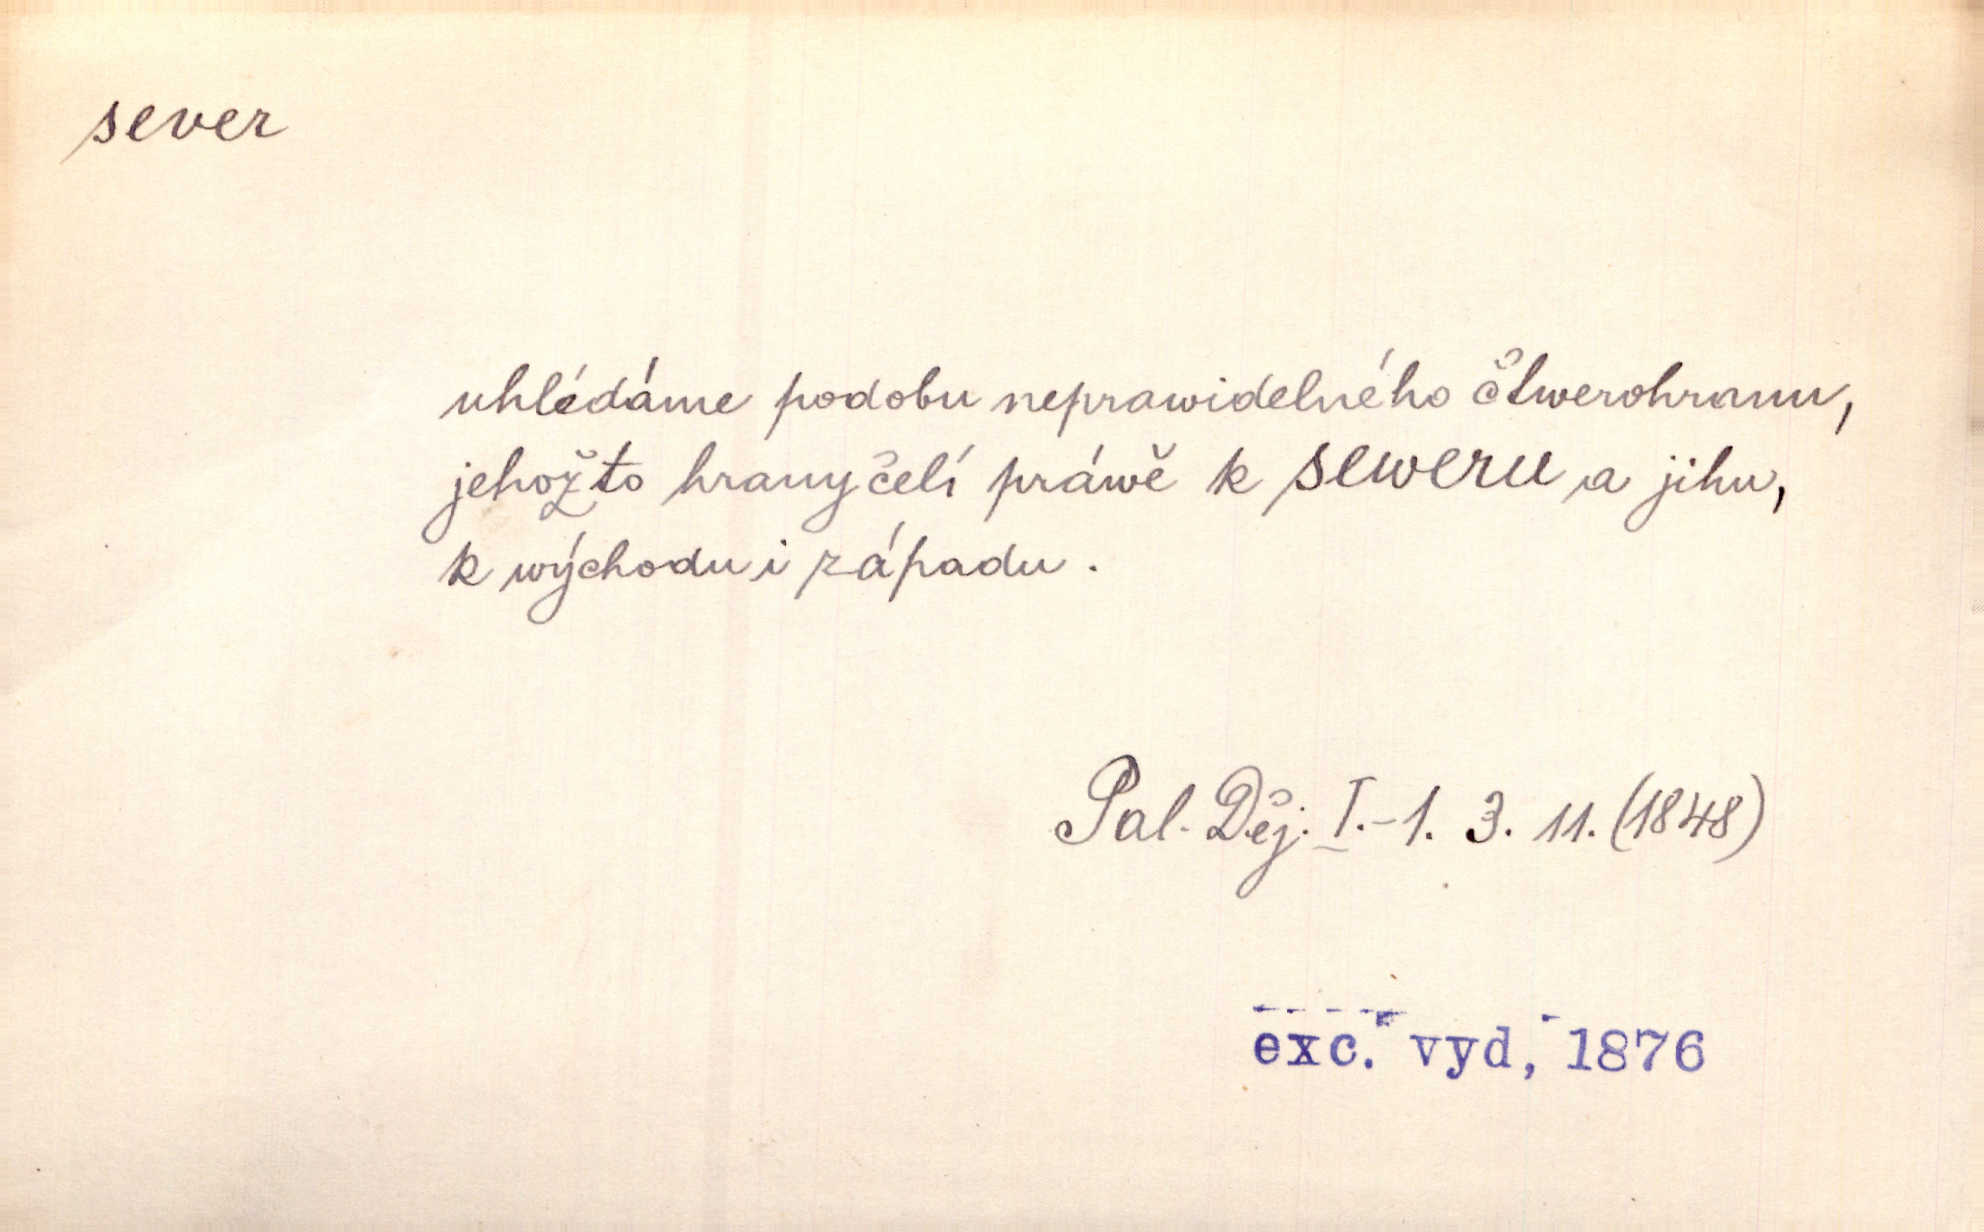 sever
uhlédáme podobu neprawidelného čtwerohranu,
jehožto hrany čelí práwě k seweru a jihu,
k wýchodu i západu.
Pal. Děj. I.-1. 3. 11. (1848)
exc. vyd, 1876